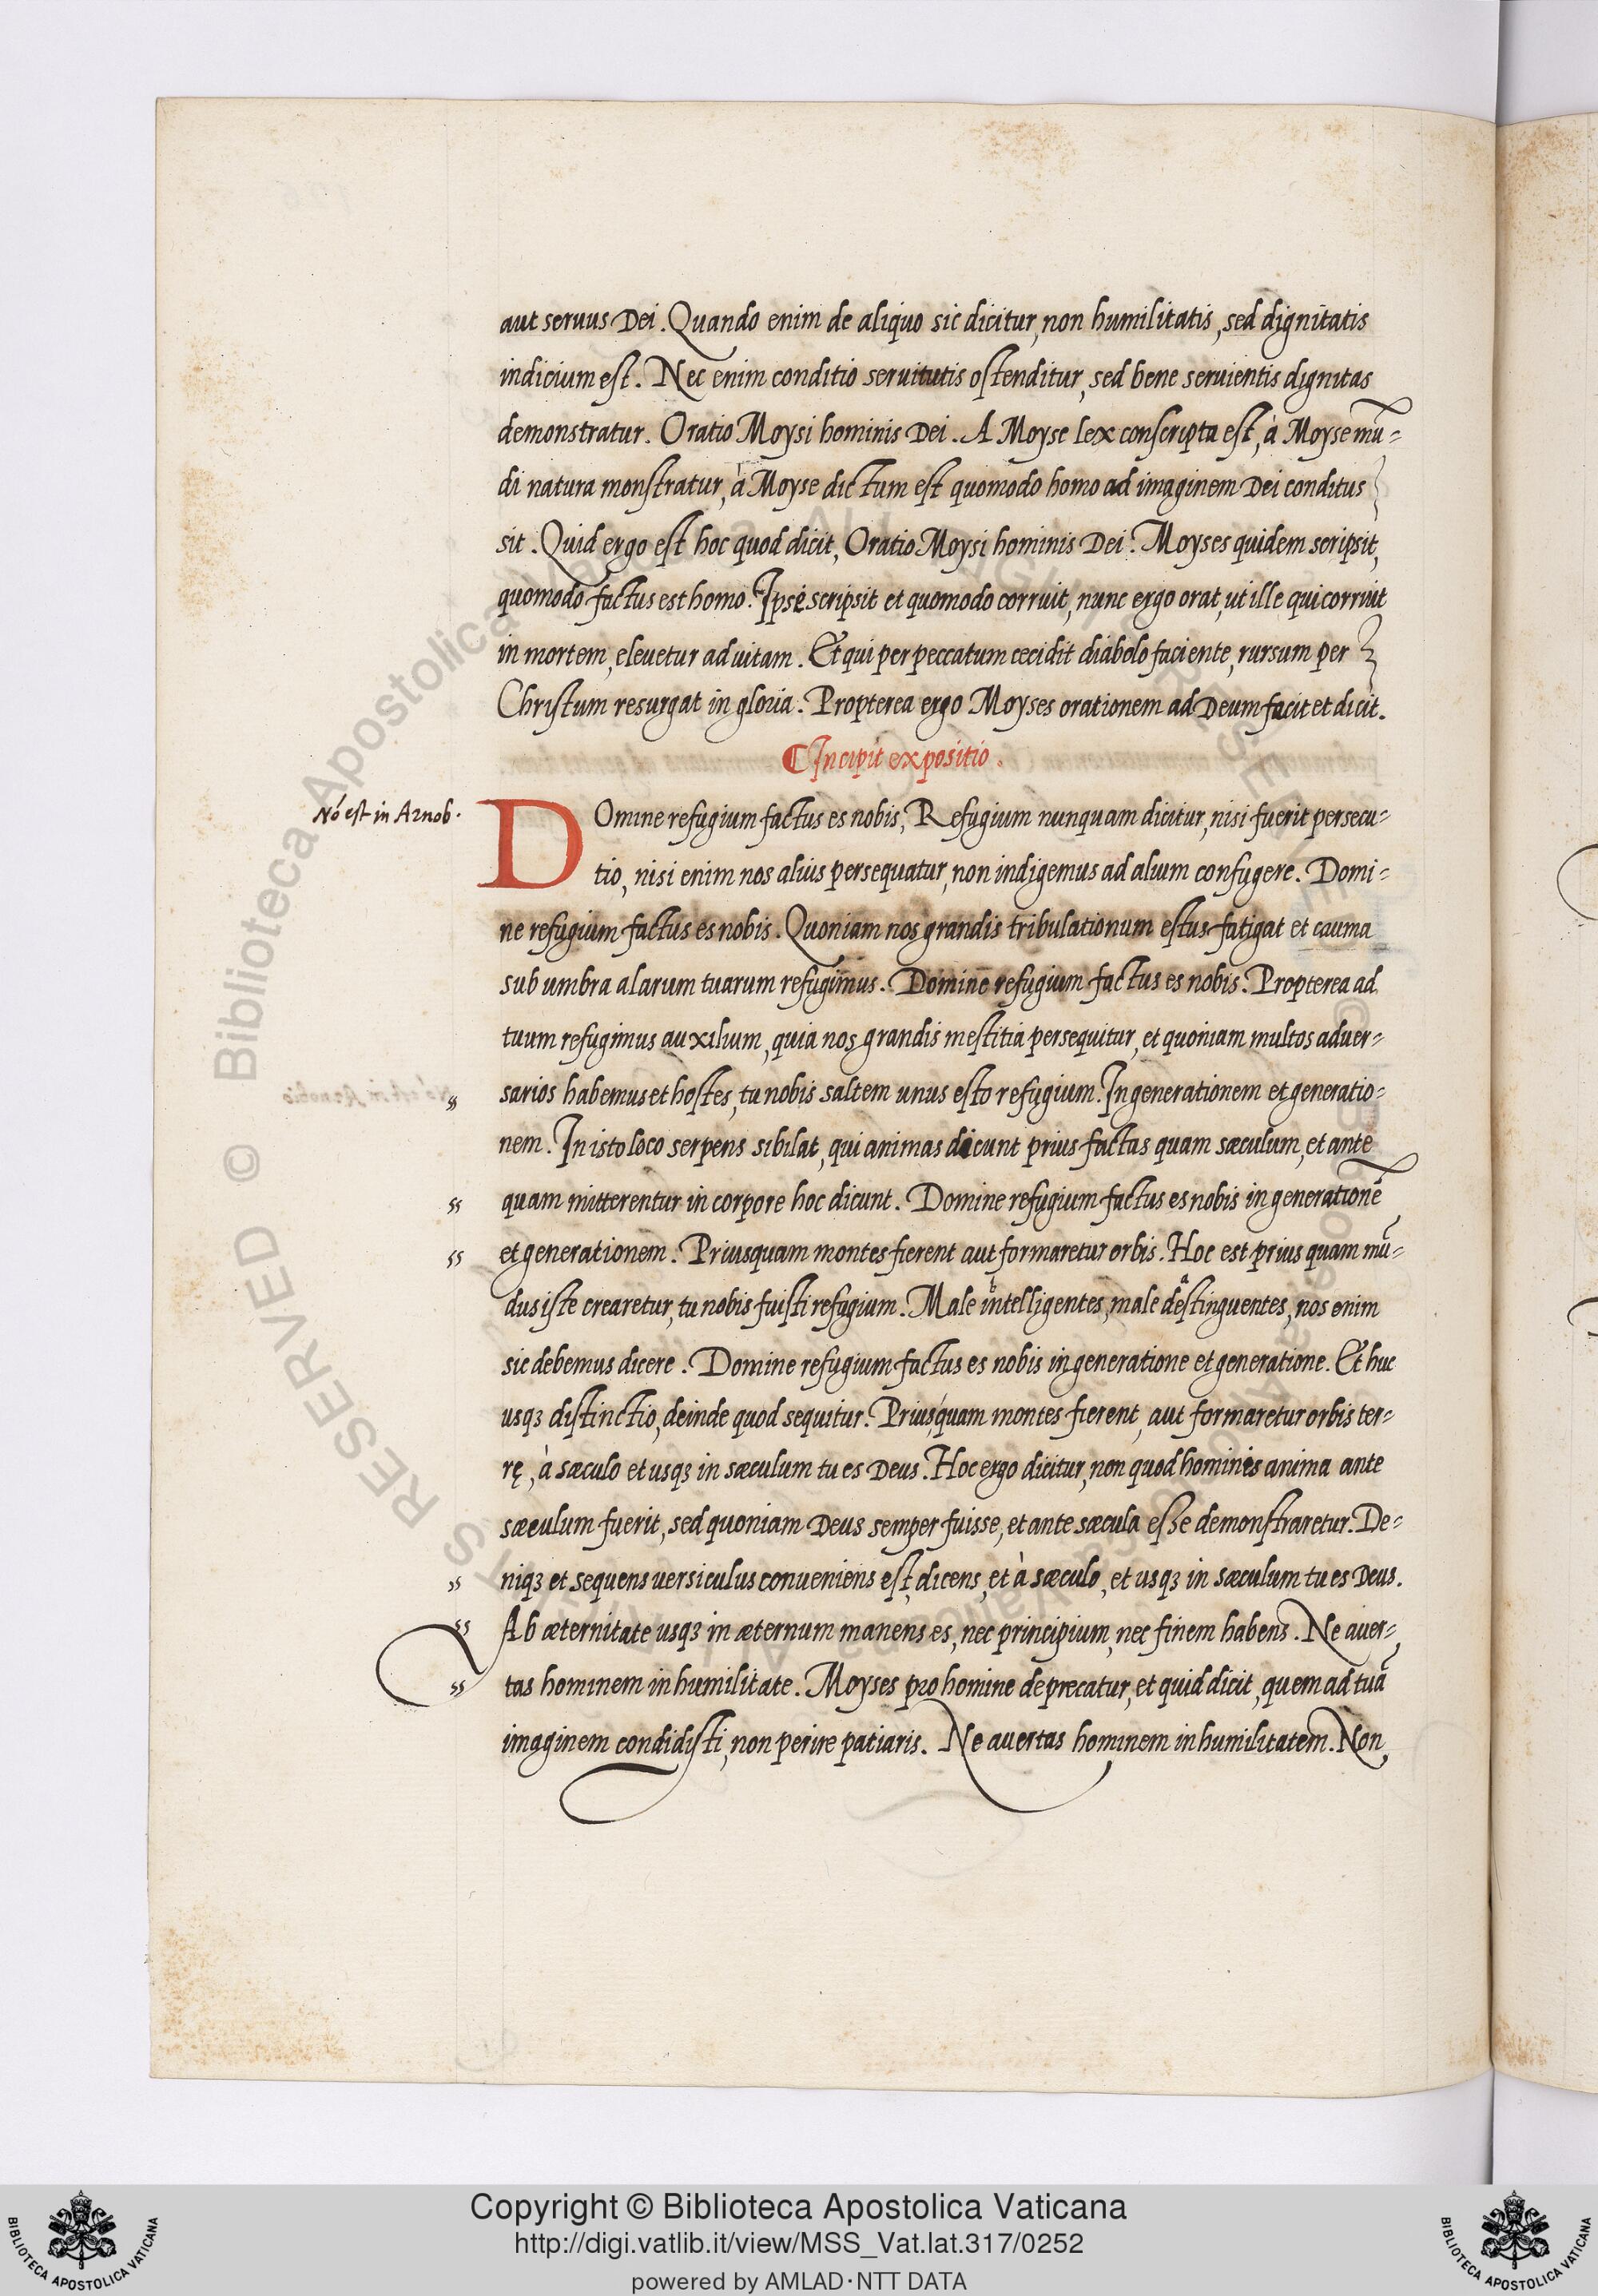 aut seruus Dei. Quando enim de aliquo sic dicitur, non humilitatis, sed dignitatis
indicium est. Nec enim conditio seruitutis ostenditur, sed bene seruientis dignitas
demonstratur. Oratio Moysi hominis Dei. A Moyse lex conscripta est, à Moyse mū-
di natura monstratur, à Moyse dictum est quomodo homo ad imaginem Dei conditus
sit. Quid ergo est hoc quod dicit, Oratio Moysi hominis Dei? Moyses quidem scripsit,
quomodo factus est homo. Ipse scripsit et quomodo corruit, nunc ergo orat, ut ille qui corruit
in mortem, eleuetur ad uitam. Et qui per peccatum cecidit diabolo faciente, rursum per
Christum resurgat in gloria. Propterea ergo Moyses orationem ad Deum facit et dicit.
Incipit expositio.
Nō est in Arnob.
DOmine refugium factus es nobis, Refugium nunquam dicitur, nisi fuerit persecu-
tio, nisi enim nos alius persequatur, non indigemus ad alium confugere. Domi-
ne refugium factus es nobis. Quoniam nos grandis tribulationum estus fatigat et cauma
sub umbra alarum tuarum refugimus. Domine refugium factus es nobis. Propterea ad
tuum refugimus auxilium, quia nos grandis mestitia persequitur, et quoniam multos aduer-
sarios habemus et hostes, tu nobis saltem unus esto refugium. In generationem et generatio-
nem. In isto loco serpens sibilat, qui animas dicunt prius factas quam sæculum, et ante
quam mitterentur in corpore hoc dicunt. Domine refugium factus es nobis in generationē
et generationem. Priusquam montes fierent aut formaretur orbis. Hoc est prius quam mū-
dus iste crearetur, tu nobis fuisti refugium. Male intelligentes, male destinguentes, nos enim
sic debemus dicere. Domine refugium factus es nobis in generatione et generatione. Et huc
usqȝ distinctio, deinde quod sequitur. Priusquam montes fierent, aut formaretur orbis ter-
rę, à sæculo et usqȝ in sæculum tu es Deus. Hoc ergo dicitur, non quod hominis anima ante
sæculum fuerit, sed quoniam Deus semper fuisse, et ante sæcula esse demonstraretur. De-
niqȝ et sequens uersiculus conueniens est, dicens, et à sæculo, et usqȝ in sæculum tu es Deus.
Ab æternitate usqȝ in æternum manens es, nec principium, nec finem habens. Ne auer-
tas hominem in humilitate. Moyses pro homine deprecatur, et quid dicit, quem ad tuā
imaginem condidisti, non perire patiaris. Ne auertas hominem in humilitatem. Non
Copyright © Biblioteca Apostolica Vaticana
http://digi.vatlib.it/view/MSS_Vat.lat.317/0252
powered by AMLAD·NTT DATA
BIBLIOTECA APOSTOLICA VATICANA
BIBLIOTECA APOSTOLICA VATICANA